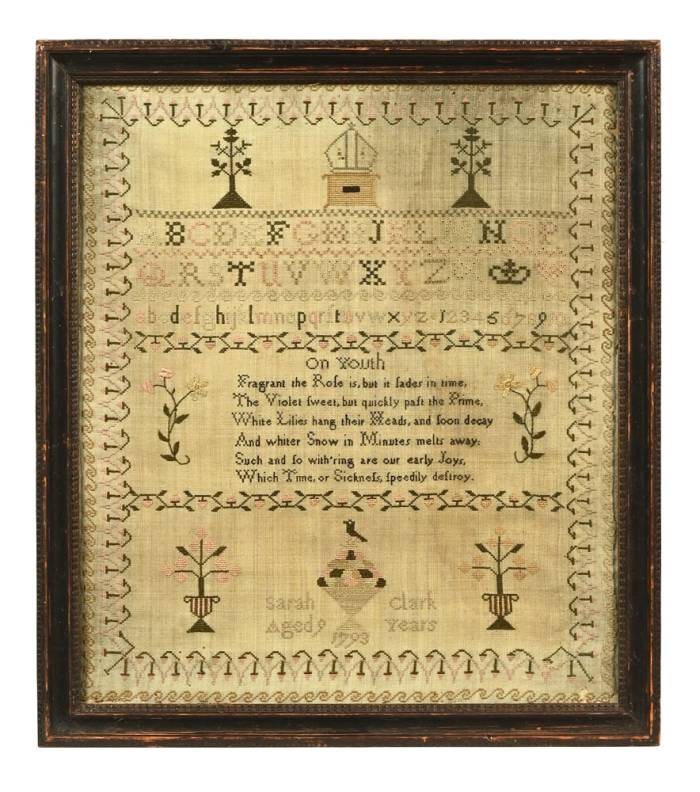 B C D F G H J K L N O P
Q R S T U V W X Y Z
a b c d e f g h i j k l m n o p q r s t u v w x y z 1 2 3 4 5 6 7 8 9 10
On Youth
Fragrant the Roſe is, but it fades in time,
The Violet ſweet, but quickly paſt the Prime,
White Lilies hang their Heads, and ſoon decay
And whiter Snow in Minutes melts away:
Such and ſo with'ring are our early Joys,
Which Time, or Sickneſs, ſpeedily deſtroy.
Sarah Clark
Aged 9 Years
1793